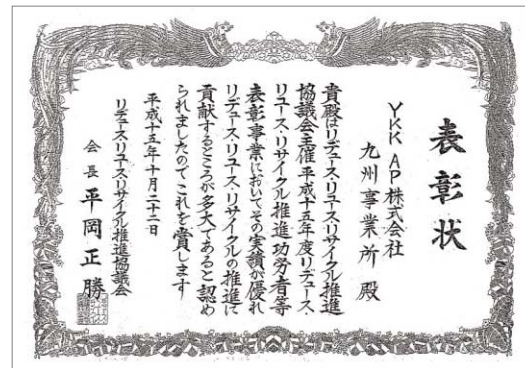 表彰状
YKK AP株式会社
九州事業所 殿
貴殿はリデュース・リユース・リサイクル推進
協議会主催平成十五年度リデュース・
リユース・リサイクル推進功労者等
表彰事業においてその実績が優れ
リデュース・リユース・リサイクルの推進に
貢献するところが多大であると認め
られましたのでこれを賞します
平成十五年十月二十二日
リデュース・リユース・リサイクル推進協議会
会長 平岡正勝